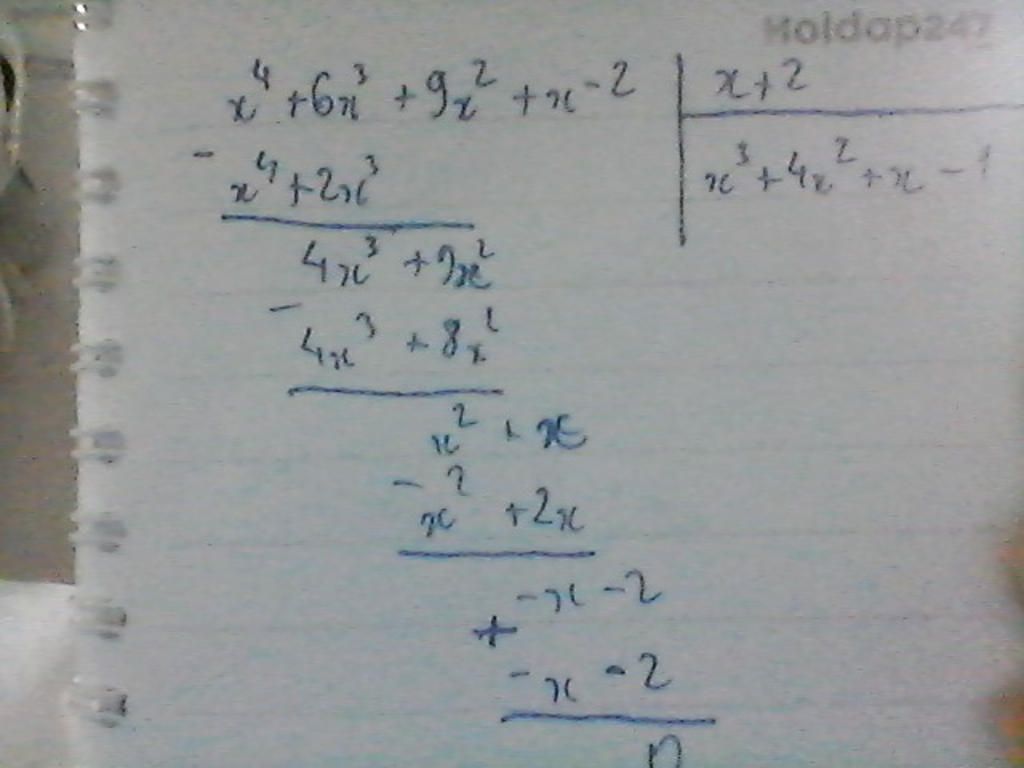 Hoidap247
x⁴ + 6x³ + 9x² + x - 2 | x + 2
- x⁴ + 2x³ | x³ + 4x² + x - 1
4x³ + 9x²
- 4x³ + 8x²
x² + x
- x² + 2x
-x - 2
+ -x - 2
0